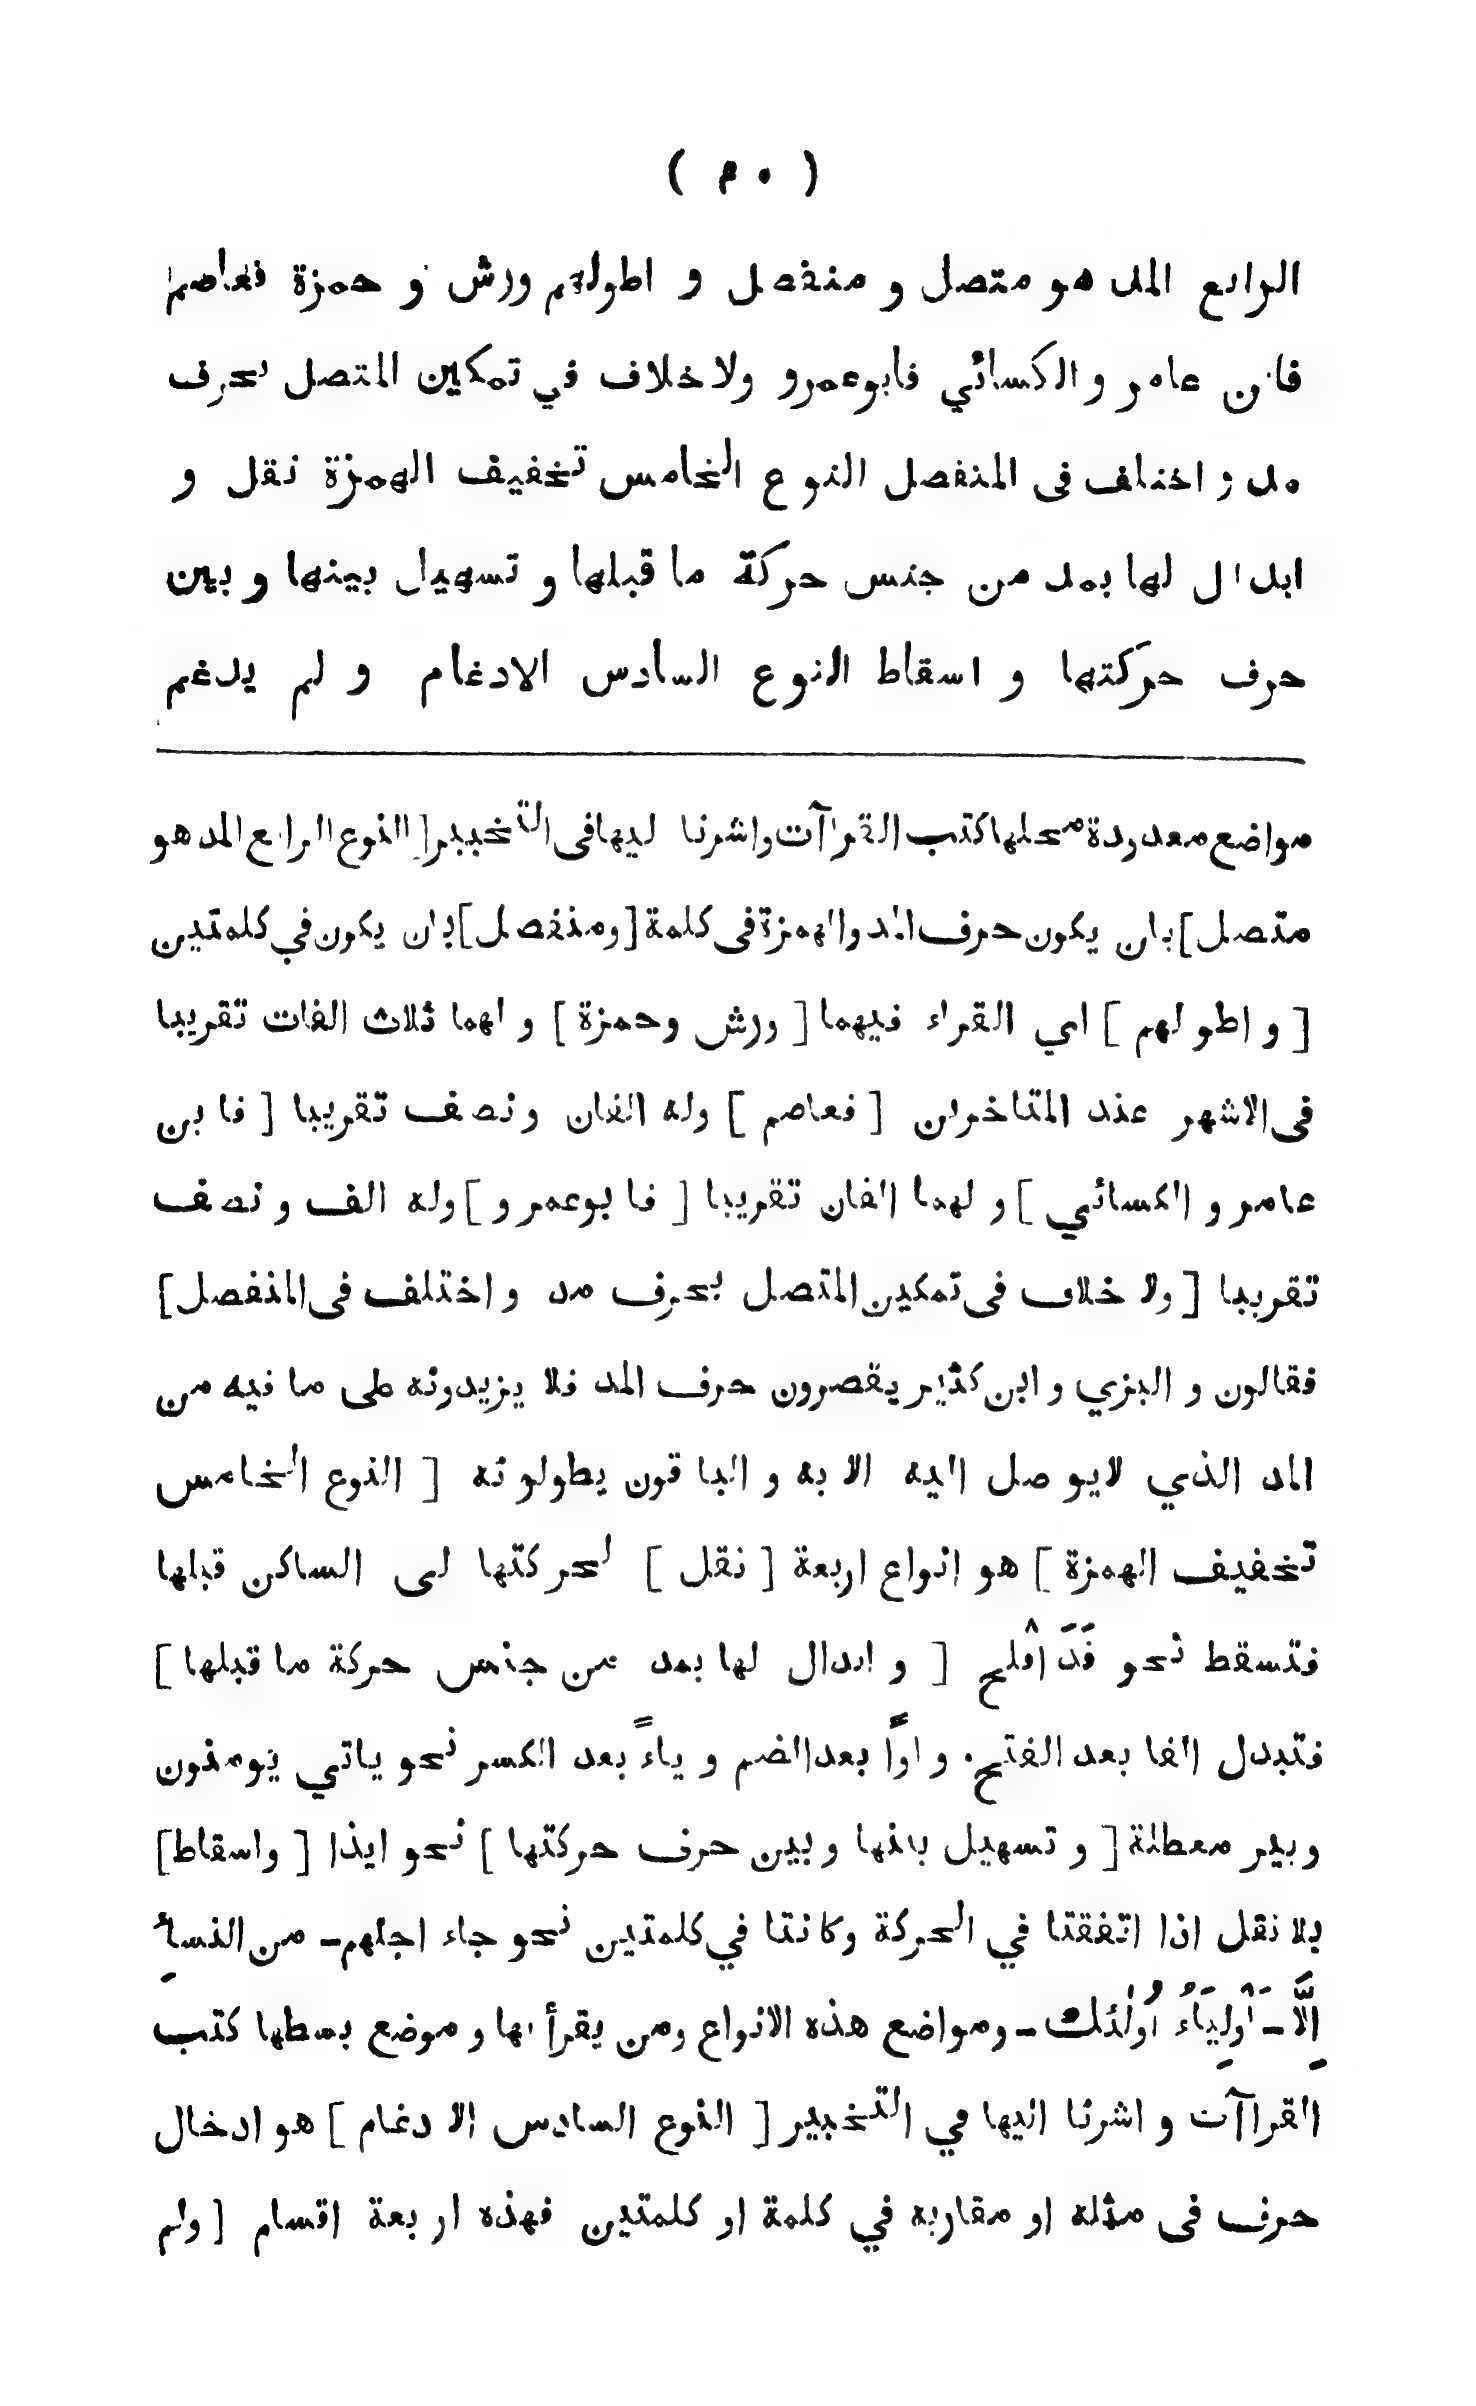 ( ٤٠ )
الرابع المد هو متصل و منفصل و اطولهم ورش و حمزة فعاصم
فابن عامر و الكسائي فأبوعمرو ولاخلاف في تمكين المتصل بحرف
مد و اختلف فى المنفصل النوع الخامس تخفيف الهمزة نقل و
ابدال لها بمد من جنس حركة ما قبلها و تسهيل بينها و بين
حرف حركتها و اسقاط النوع السادس الادغام و لم يدغم
مواضع معدودة محلها كتب القرأآت واشرنا ليها فى التحبير [ النوع الرابع المد هو
متصل ] بان يكون حرف المد والهمزة فى كلمة [ ومنفصل ] بان يكون في كلمتين
[ و اطو لهم ] اي القراء فيهما [ ورش وحمزة ] و لهما ثلاث الفات تقريبا
فى الاشهر عند المتاخرين [ فعاصم ] وله الفان ونصف تقريبا [ فا بن
عامر و الكسائي ] و لهما الفان تقريبا [ فا بوعمر و ] وله الف و نصف
تقريبا [ ولا خلاف فى تمكين المتصل بحرف مد و اختلف فى المنفصل ]
فقالون و البزي و ابن كثير يقصرون حرف المد فلا يزيدونه على ما فيه من
المد الذي لايوصل اليه الا به و البا قون يطولو نه [ النوع الخامس
تخفيف الهمزة ] هو انواع اربعة [ نقل ] لحر كتها لى الساكن قبلها
فتسقط نحو قَدَ افْلح [ و ابدال لها بمد من جنس حركة ما قبلها ]
فتبدل الفا بعد الفتح و اواً بعد الضم و ياءً بعد الكسر نحو ياتي يومنون
و بير معطلة [ و تسهيل بينها و بين حرف حركتها ] نحو ايذا [ واسقاط ]
بلا نقل اذا اتفقتا في الحركة وكانتا في كلمتين نحو جاء اجلهم - من النسأِ
اِلَّا - اَوْلِيَاءُ اُولٰئك - ومواضع هذه الانواع ومن يقرأ بها و موضع بسطها كتب
القراآت و اشرنا اليها في التحبير [ النوع السادس الا دغام ] هو ادخال
حرف فى مثله او مقاربه في كلمة او كلمتين فهذه ار بعة اقسام [ ولم